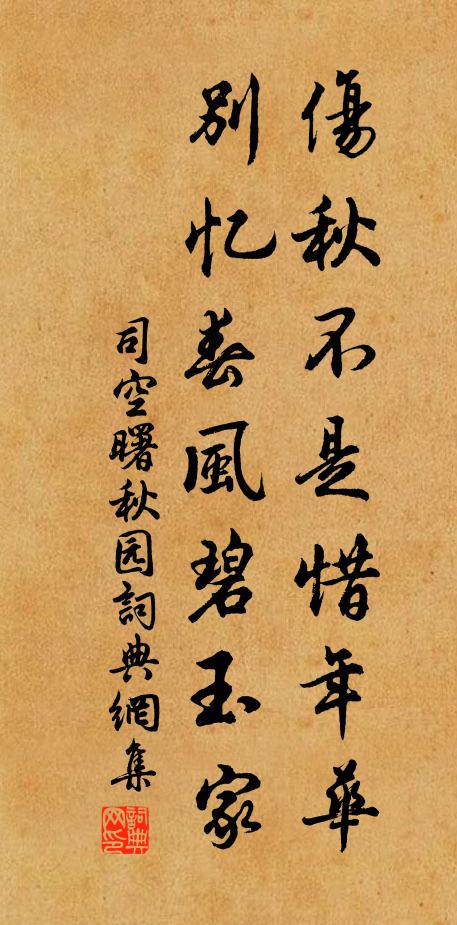 傷秋不是惜年華
别忆春風碧玉家
司空曙秋园詞典網集
詞典网印